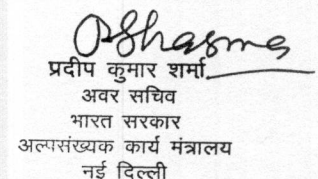 PShasma
प्रदीप कुमार शर्मा
अवर सचिव
भारत सरकार
अल्पसंख्यक कार्य मंत्रालय
नई दिल्ली